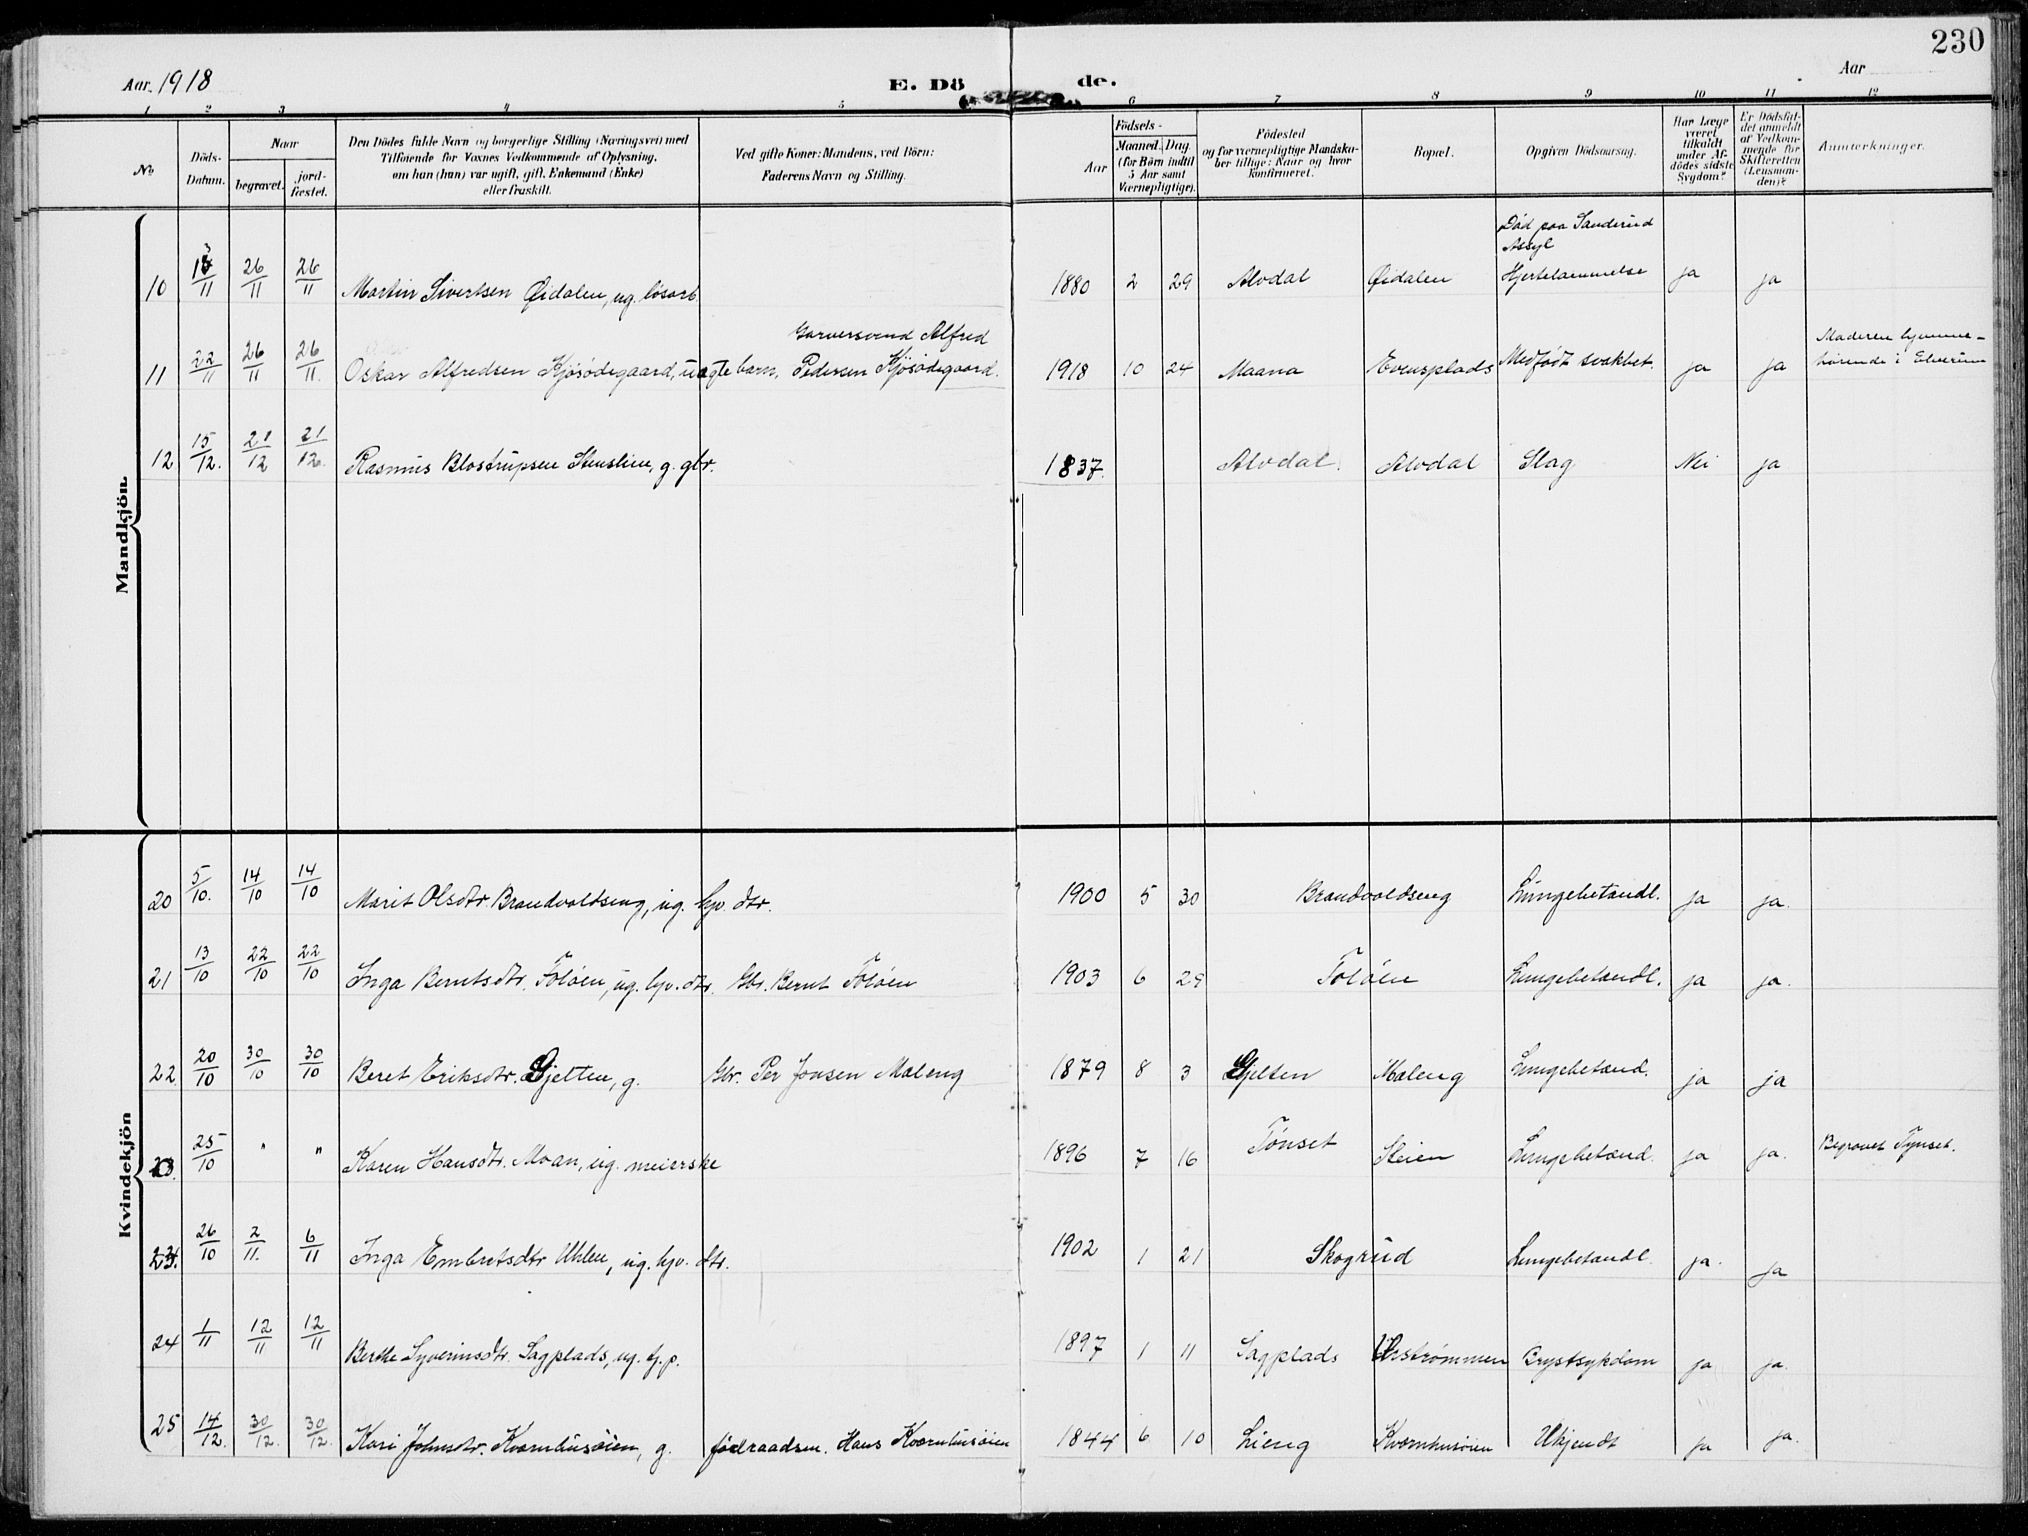 230
Aar 1918
E. Dö de.
Aar
1 2 3 4 5 6 7 8 9 10 11 12
No
Döds-Datum.
Naar
begravet.
jord-fæstet.
Den Dödes fulde Navn og borgerlige Stilling (Næringsvei) med
Tilföiende for Voxnes Vedkommende af Oplysning,
om han (hun) var ugift, gift, Enkemand (Enke)
eller fraskilt.
Ved gifte Koner: Mandens, ved Börn:
Faderens Navn og Stilling.
Födsels-
Aar
Maaned. Dag.
(for Börn indtil
5 Aar samt
Værnepligtige).
Födested
og for værnepligtige Mandska-
ber tillige: Naar og hvor
konfirmeret.
Bopæl.
Opgiven Dödsaarsag.
Har Læge
været
tilkaldt
under Af-
dödes sidste
Sygdom?
Er Dödsfal-
det anmeldt
af Vedkom-
mende for
Skifteretten
(Lensman-
den)?
Anmærkninger.
Mandkjön.
10 13/11 26/11 26/11 Martin Sivertsen Øidalen, ug. løsarb 1880 2 29 Alvdal Øidalen Død paa Sanderud Assyl Hjertelammelse ja ja
11 22/11 26/11 26/11 Oskar Alfredsen Kjøsødegaard, uægte barn, Garversvend Alfred Pedersen Kjøsødegaard. 1918 10 24 Maana Evensplads Medfødt svakhet. ja ja Moderen hjemme-hørende i Elverum
12 15/12. 21/12 21/12. Rasmus Blostrupsen Stenslien, g. gbr. 1837. Alvdal. Alvdal Slag Nei ja
Kvindekjön
20 5/10. 14/10 14/10 Marit Olsdtr. Brandvoldseng, ug. hjv. dtr. 1900 5 30 Brandvoldseng Lungebetændl. ja ja.
21 13/10 22/10 22/10 Inga Berntsdtr. Foløen, ug. hjv. dtr. Gbr. Bernt Foløen 1903 6 29 Foløen Lungebetændl. ja ja.
22 20/10 30/10 30/10 Beret Eriksdtr. Gjelten, g. Gbr. Per Jonsen Maleng 1879 8 3 Gjelten Maleng Lungebetænd. ja ja
25/10 " " Karen Hansdtr. Moan, ug. meierske 1896 7 16 Tønset Steien Lungebetænd. ja ja. Begravet Tynset.
23. 26/10 2/11. 6/11 Inga Embretsdtr Uhlen, ug. hjv. dtr. 1902 1 21 Skogrud Lungebetændl. ja. ja
24 1/11 12/11 12/11 Berthe Syverinsdtr. Sagplads, ug. tj. p. 1897 1 11 Sagplads Urstrømmen Brystsykdom ja ja.
25 14/12. 30/12. 30/12. Kari Johnsdtr. Kværnhusøien, g. føderaadsm. Hans Kværnhusøien 1844 6 10 Lieng Kværnhusøien Ukjendt ja ja.